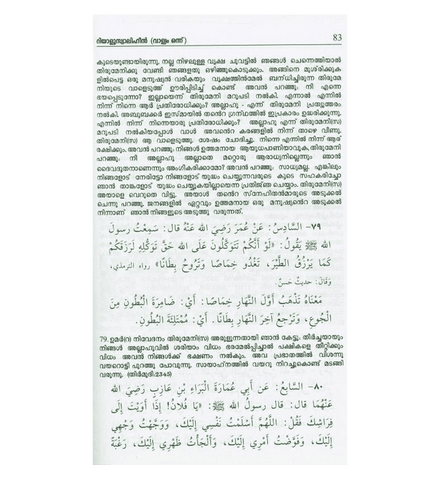 റിയാളുസ്സ്വാലിഹീൻ (വാള്യം ഒന്ന്) 83
കൂടെയുണ്ടായിരുന്നു. നല്ല നിഴലുള്ള വൃക്ഷ ചുവട്ടിൽ ഞങ്ങൾ ചെന്നെത്തിയാൽ
തിരുമേനിക്കു വേണ്ടി ഞങ്ങളതു ഒഴിഞ്ഞുകൊടുക്കും. അങ്ങിനെ മുശ്രിക്കുക
ളിൽപെട്ട ഒരു മനുഷ്യൻ വരികയും വൃക്ഷത്തിൻമേൽ ബന്ധിച്ചിരുന്ന തിരുമേ
നിയുടെ വാളെടുത്ത് ഊരിപ്പിടിച്ച് കൊണ്ട് അവൻ പറഞ്ഞു: നീ എന്നെ
ഭയപ്പെടുന്നോ? ഇല്ലായെന്ന് തിരുമേനി മറുപടി നൽകി. എന്നാൽ എന്നിൽ
നിന്ന് നിന്നെ ആര് പ്രതിരോധിക്കും? അല്ലാഹു - എന്ന് തിരുമേനി പ്രത്യുത്തരം
നൽകി. അബൂബക്കർ ഇസ്മായിൽ തന്റെ ഗ്രന്ഥത്തിൽ ഇപ്രകാരം ഉദ്ധരിക്കുന്നു.
എന്നിൽ നിന്ന് നിന്നെയാരു പ്രതിരോധിക്കും? അല്ലാഹു എന്ന് തിരുമേനി(സ)
മറുപടി നൽകിയപ്പോൾ വാൾ അവന്റെ കരങ്ങളിൽ നിന്ന് താഴെ വീണു.
തിരുമേനി(സ) ആ വാളെടുത്തു. ശേഷം ചോദിച്ചു. നിന്നെ എന്നിൽ നിന്ന് ആര്
രക്ഷിക്കും. അവൻ പറഞ്ഞു. നിങ്ങൾ ഉത്തമനായ ആയുധപാണിയാവുക, തിരുമേനി
പറഞ്ഞു: നീ അല്ലാഹു അല്ലാതെ മറ്റൊരു ആരാധ്യനില്ലെന്നും ഞാൻ
ദൈവദൂതനാണെന്നും അംഗീകരിക്കാമോ? അവൻ പറഞ്ഞു. സാധ്യമല്ല. എങ്കിലും
നിങ്ങളോട് നേരിട്ടോ നിങ്ങളോട് യുദ്ധം ചെയ്യുന്നവരുടെ കൂടെ സഹകരിച്ചോ
ഞാൻ താങ്കളോട് യുദ്ധം ചെയ്യുകയില്ലായെന്ന പ്രതിജ്ഞ ചെയ്യാം. തിരുമേനി(സ)
അയാളെ വെറുതെ വിട്ടു. അയാൾ തന്റെ സ്നേഹിതൻമാരുടെ അടുക്കൽ
ചെന്നു പറഞ്ഞു. ജനങ്ങളിൽ ഏറ്റവും ഉത്തമനായ ഒരു മനുഷ്യന്റെ അടുക്കൽ
നിന്നാണ് ഞാൻ നിങ്ങളുടെ അടുത്തു വരുന്നത്.
٧٩- السَّادِسُ: عَنْ عُمَرَ رَضِيَ الله عَنْهُ قال: سَمِعْتُ رسولَ
الله ﷺ يَقُولُ: «لَوْ أَنَّكُمْ تَتَوَكَّلُونَ عَلَى الله حَقَّ تَوَكُّلِهِ لَرَزَقَكُمْ
كَمَا يَرْزُقُ الطَّيْرَ، تَغْدُو خِمَاصًا وَتَرُوحُ بِطَانًا» رواه الترمذي،
وَقَال: حديثٌ حَسَنٌ
مَعْنَاهُ تَذْهَبُ أَوَّلَ النَّهَارِ خِمَاصًا: أَيْ: ضَامِرَةَ الْبُطُونِ مِنَ
الْجُوعِ، وَتَرْجِعُ آخِرَ النَّهَارِ بِطَانًا. أَيْ: مُمْتَلِئَةَ الْبُطُونِ.
79. ഉമർ(റ) നിവേദനം തിരുമേനി(സ) അരുളുന്നതായി ഞാൻ കേട്ടു. തീർച്ചയായും
നിങ്ങൾ അല്ലാഹുവിൽ ശരിയാം വിധം ഭരമേൽപ്പിച്ചാൽ പക്ഷികളെ തീറ്റിക്കും
വിധം അവൻ നിങ്ങൾക്ക് ഭക്ഷണം നൽകും. അവ പ്രഭാതത്തിൽ വിശന്നു
വയറൊട്ടി പുറത്തു പോവുന്നു. സായാഹ്നത്തിൽ വയറു നിറച്ചുകൊണ്ട് മടങ്ങി
വരുന്നു. (തിർമുദി:2345)
٨٠- السَّابِعُ: عَنْ أَبِي عُمَارَةَ الْبَرَاءِ بْنِ عَازِبٍ رَضِيَ الله
عَنْهُمَا قال: قال رسولُ الله ﷺ: «يَا فُلَانُ! إِذَا أَوَيْتَ إِلَى
فِرَاشِكَ فَقُلْ: اللَّهُمَّ أَسْلَمْتُ نَفْسِي إِلَيْكَ، وَوَجَّهْتُ وَجْهِي
إِلَيْكَ، وَفَوَّضْتُ أَمْرِي إِلَيْكَ، وَأَلْجَأْتُ ظَهْرِي إِلَيْكَ، رَغْبَةً